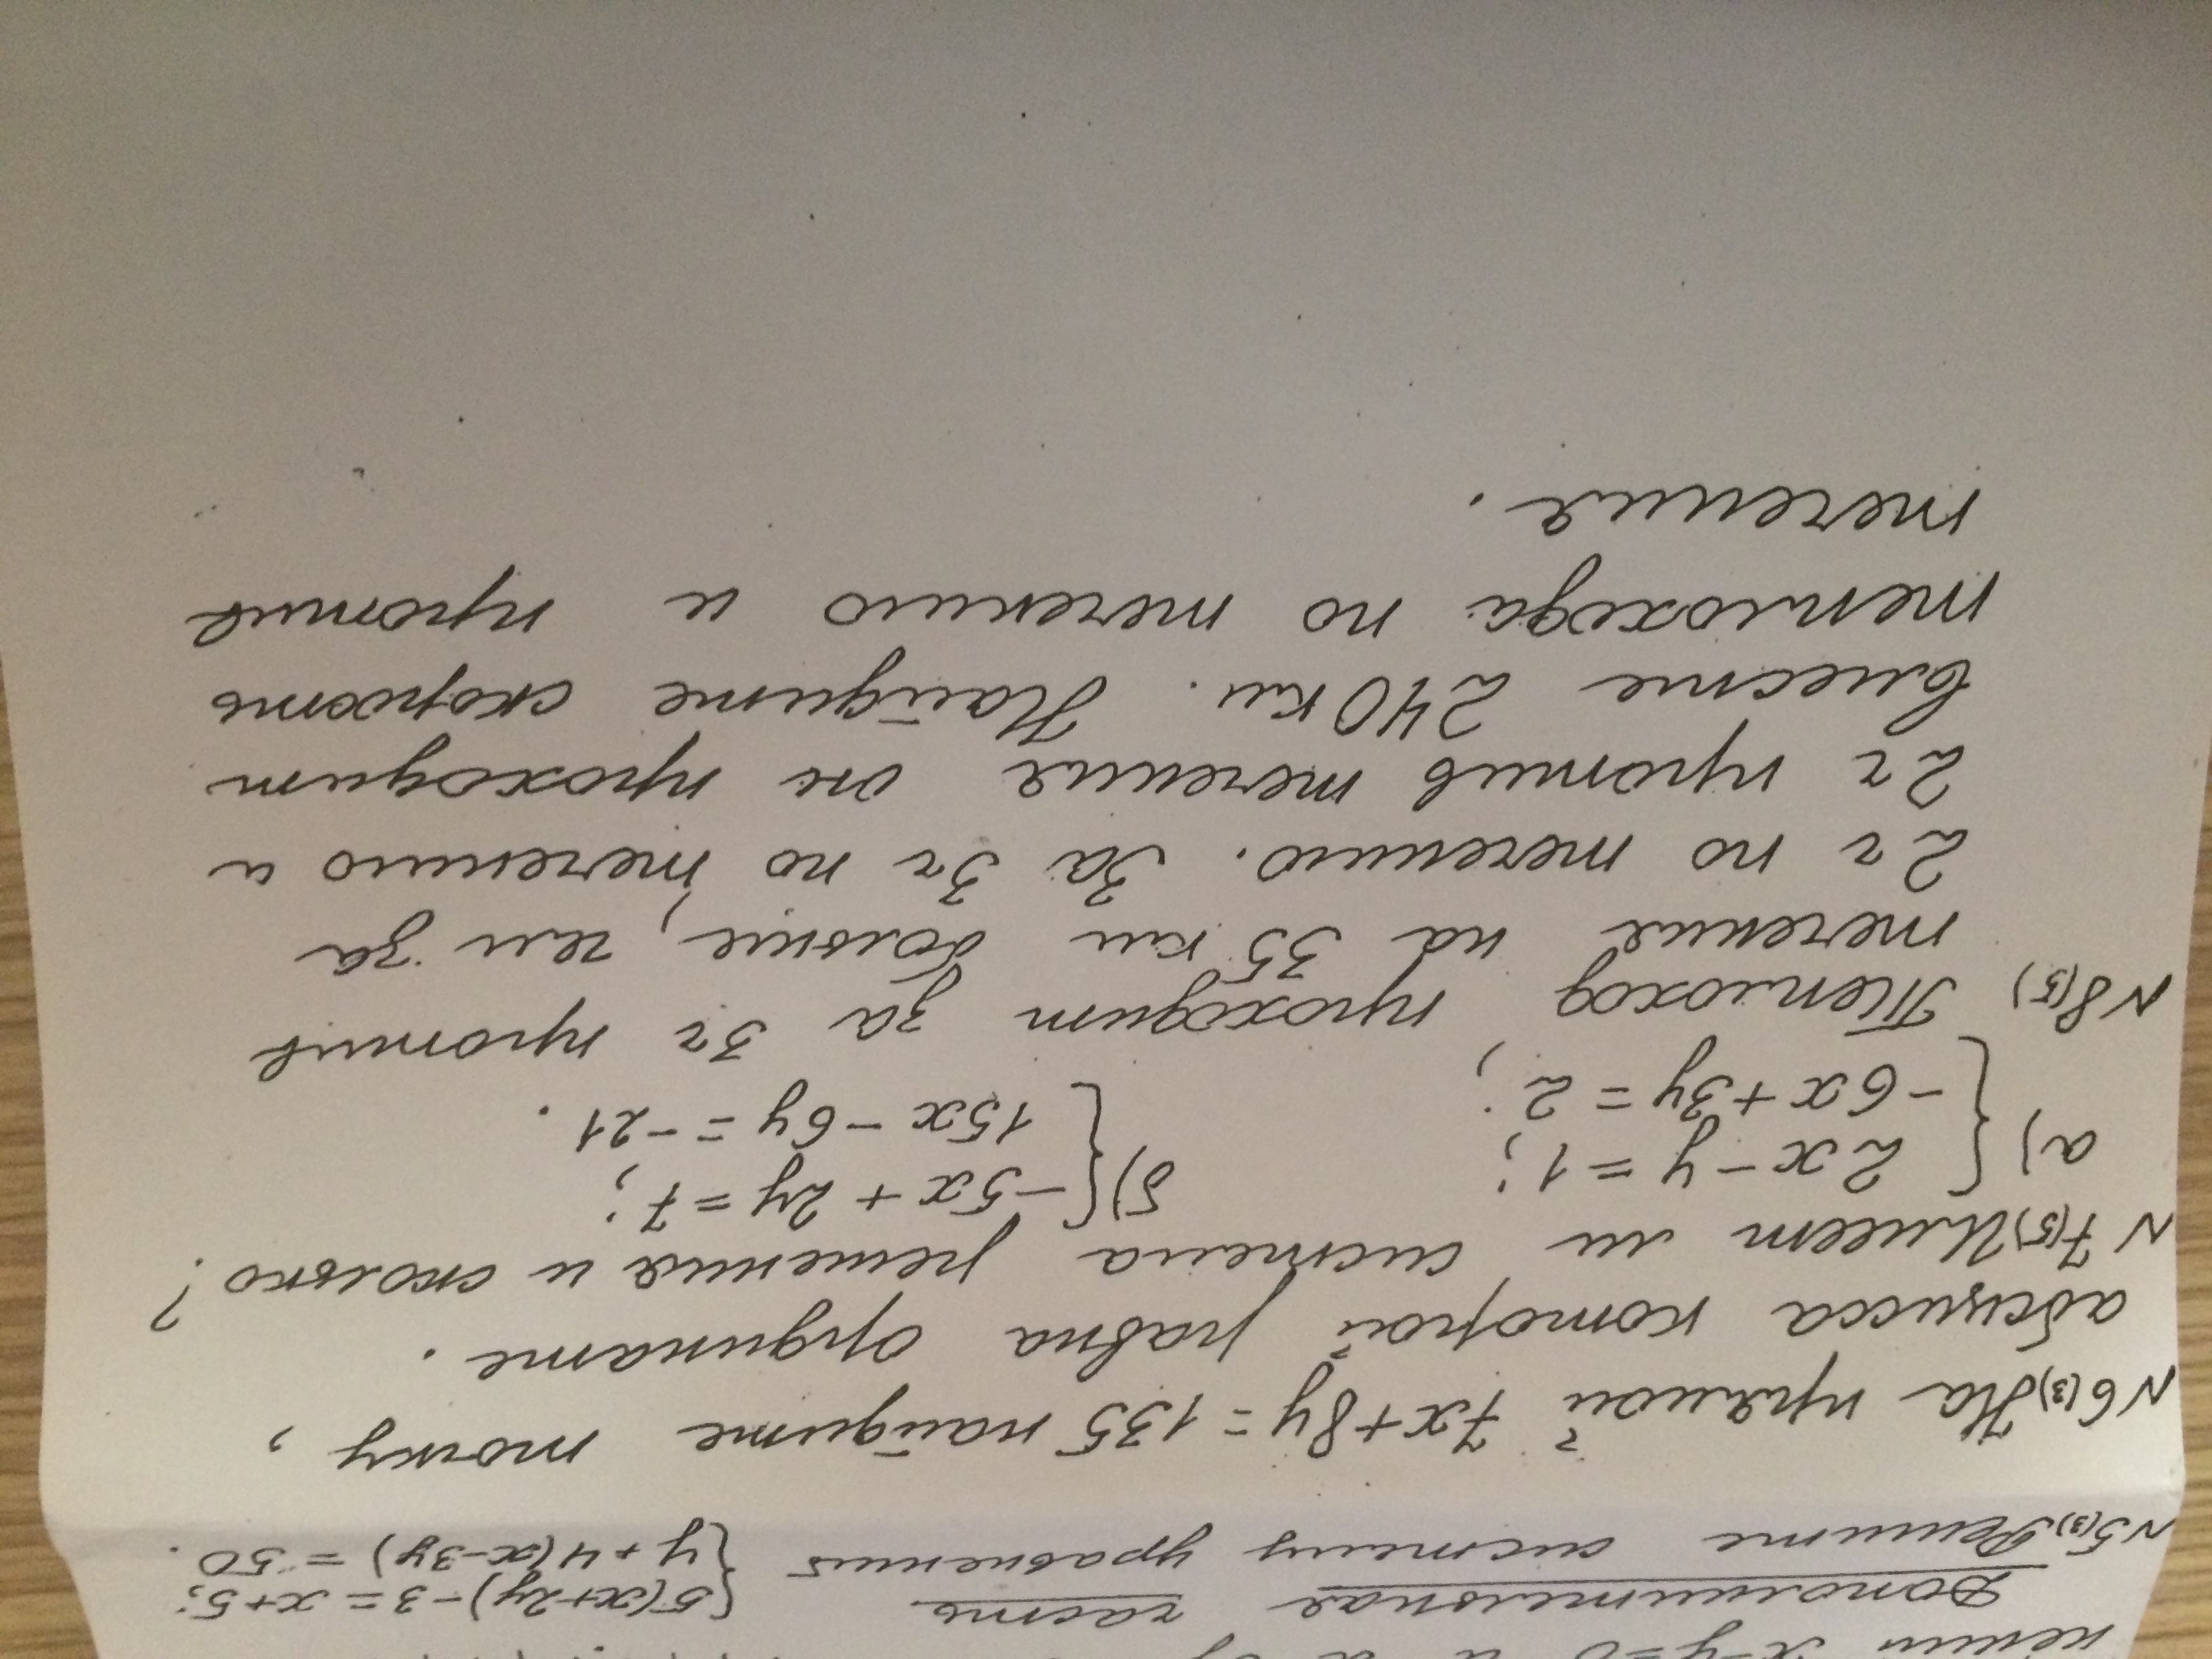 Дополнительная часть
N5(3) Решите систему уравнений { 5(x+2y)-3 = x+5; y+4(x-3y) = 50.
N6(3) На прямой 7x+8y=135 найдите точку,
абсцисса которой равна ординате.
N7(5) Имеет ли система решения и сколько?
а) { 2x-y=1; б) { -5x+2y=7;
-6x+3y=2; 15x-6y=-21.
N8(5) Теплоход проходит за 3ч против
течения на 35 км больше, чем за
2ч по течению. За 3ч по течению и
2ч против течения он проходит
вместе 240 км. Найдите скорость
теплохода по течению и против
течения.